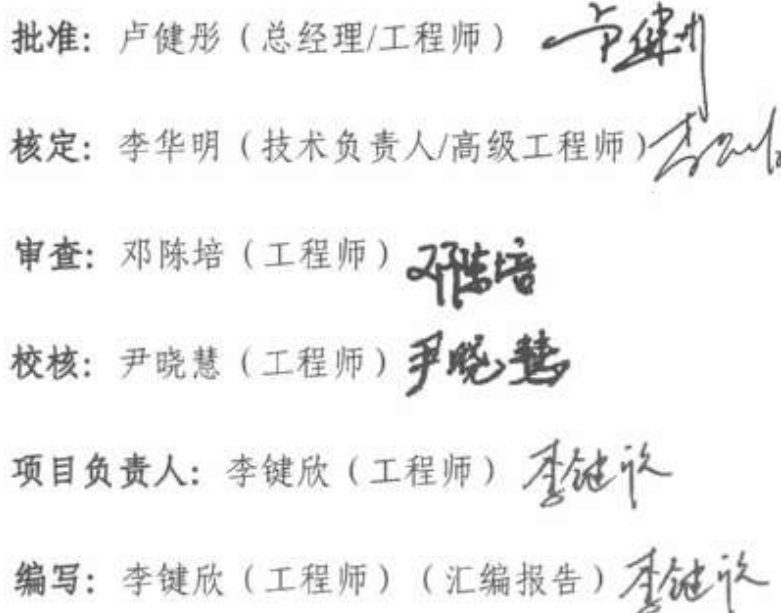 批准：卢健彤（总经理/工程师）
核定：李华明（技术负责人/高级工程师）
审查：邓陈培（工程师）邓陈培
校核：尹晓慧（工程师）尹晓慧
项目负责人：李键欣（工程师）李键欣
编写：李键欣（工程师）（汇编报告）李键欣